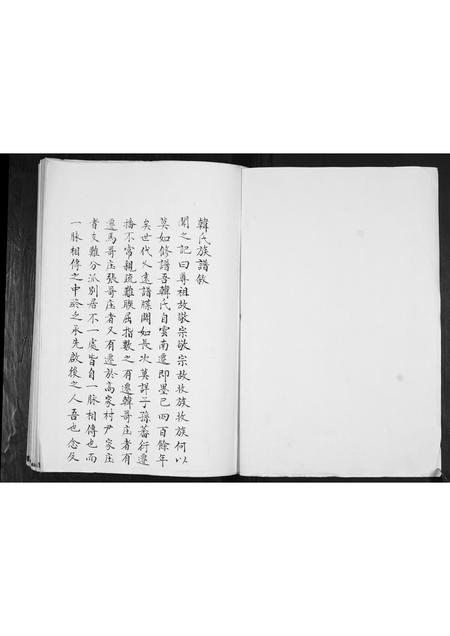 韓氏族譜敘
聞之記曰尊祖故敬宗敬宗故收族收族何以
莫如修譜吾韓氏自雲南遷即墨已四百餘年
矣世代久遠譜牒闕如長次莫詳子孫蕃衍遷
播不常親疏難联屈指數之有遷韓哥庄者有
遷馬哥庄張哥庄者又有遷於高家村尹家庄
者支難分派別居不一處皆自一脉相傳也而
一脉相傳之中終之承先啟後之人吾也念及